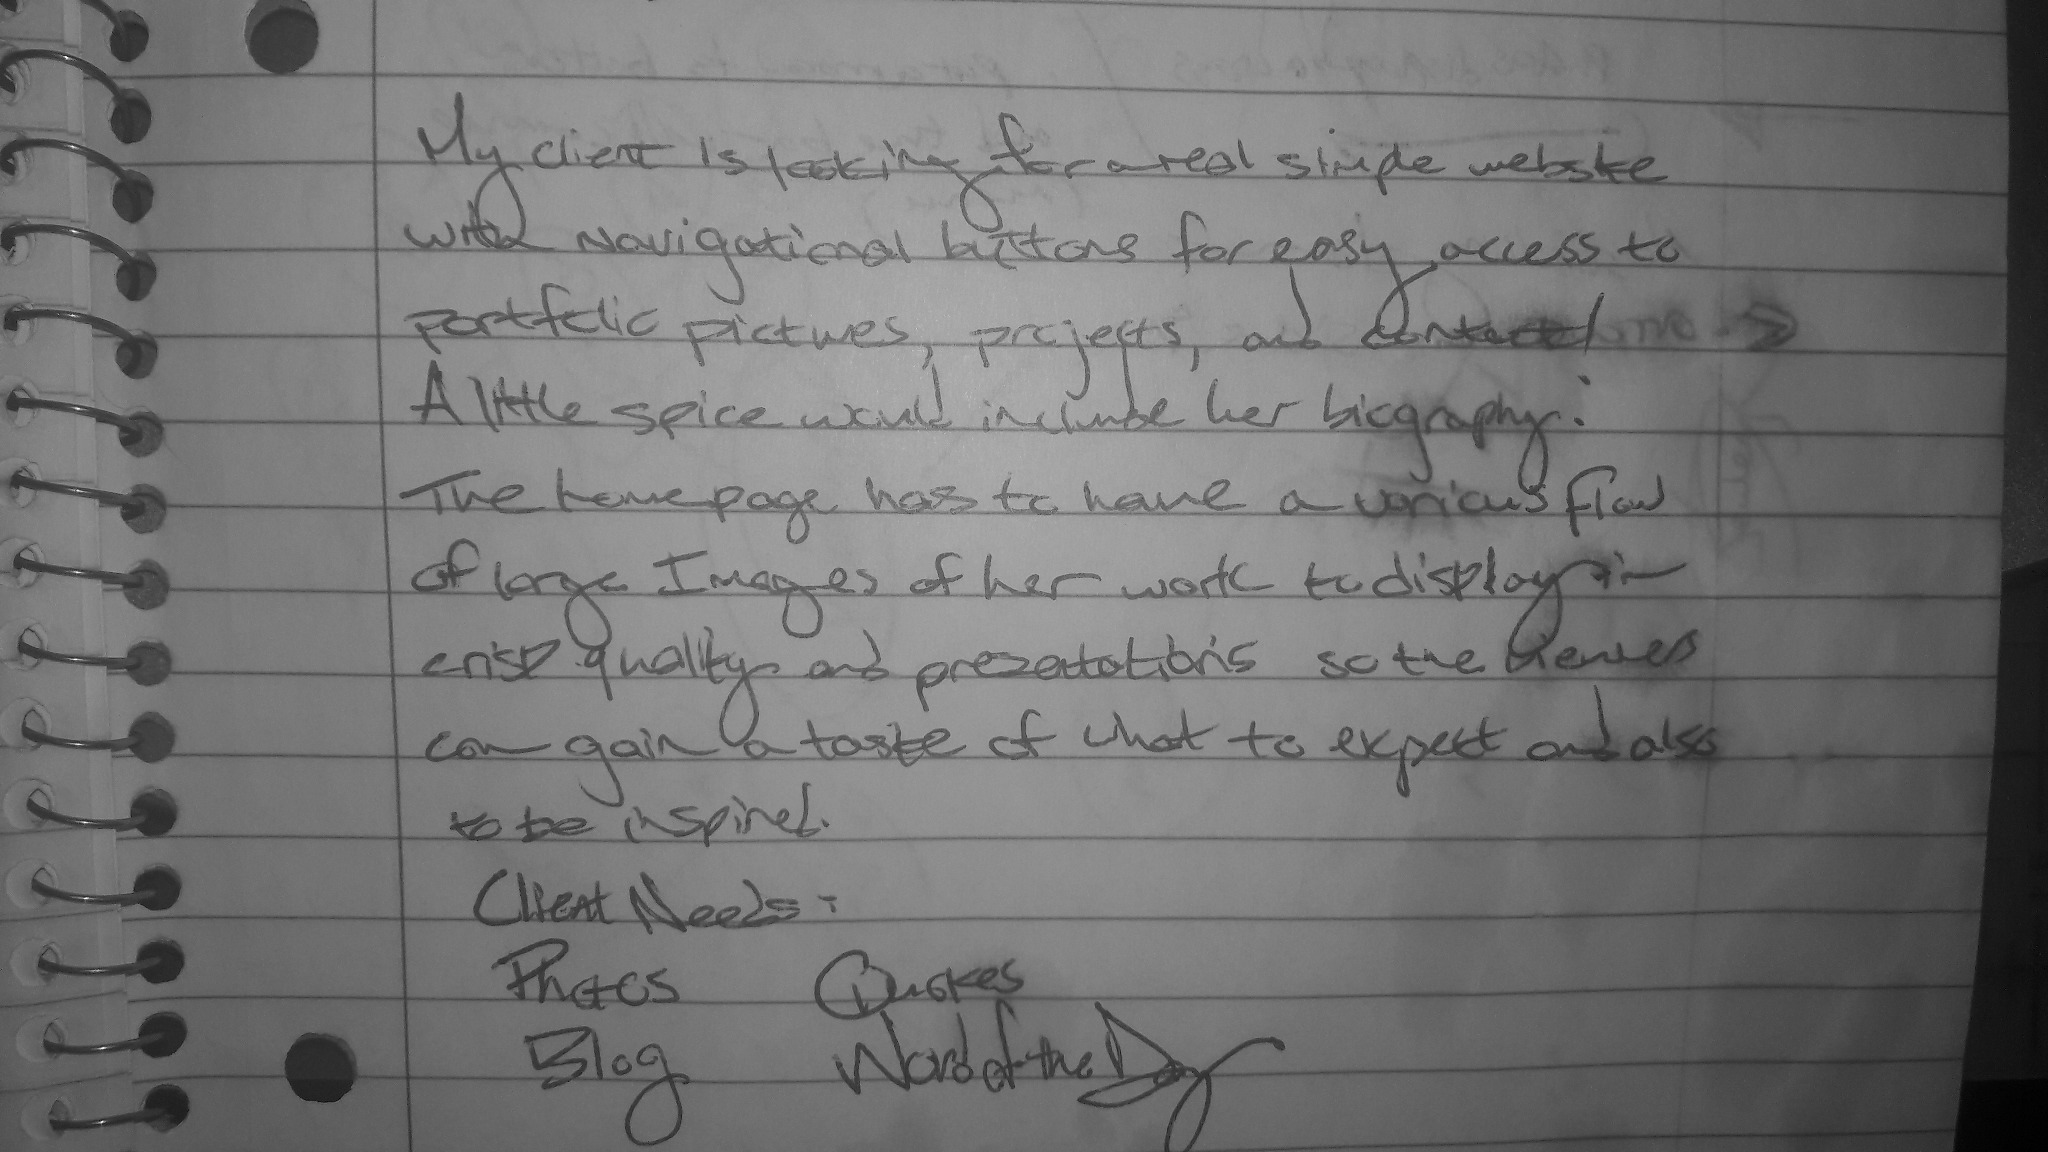 My client Is looking for a real simple website
with Navigational buttons for easy access to
portfolio pictures, projects, and contact
A little spice would include her biography.
The homepage has to have a various flow
of large Images of her work to display in
crisp quality and presentations so the viewers
can gain a taste of what to expect and also
to be inspired.
Client Needs:
Photos Quotes
Blog Word of the Day